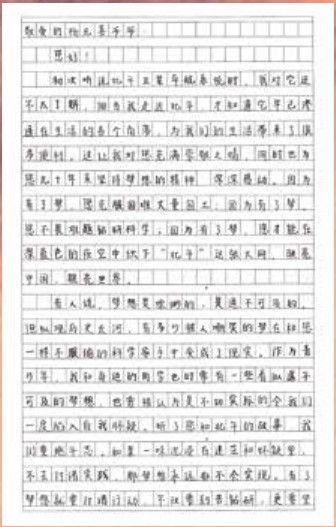 敬爱的孙元喜爷爷：
您好！
初次听说北斗卫星导航系统时，我对它还
不太了解，但当我走近北斗，才知道它早已渗
透在生活的各个角落，为我们的生活带来了很
多便利，这让我对您充满崇敬之情，同时也为
您几十年来坚持梦想的精神，深深感动。因为
有了梦，您
因为有了梦，
您不畏艰难钻研科学；因为有了梦，您才能在
深蓝色的夜空中织下“北斗”这张大网，照亮
中国，照亮世界。
有人说，梦想是缥缈的，是遥不可及的，
但纵观历史长河，有多少被人嘲笑的梦在和您
一样不服输的科学家手中变成了现实。作为青
少年，我和身边的同学也时常有一些看似遥不
可及的梦想，也曾被认为是不切实际的令我们
一度陷入自我怀疑。听了您和北斗的故事，我
们重燃斗志。如果一味沉浸在迷茫和怀疑里，
不去付诸实践，那梦想永远都不会实现。有了
梦想就要付诸行动，不仅要刻苦钻研，更要坚